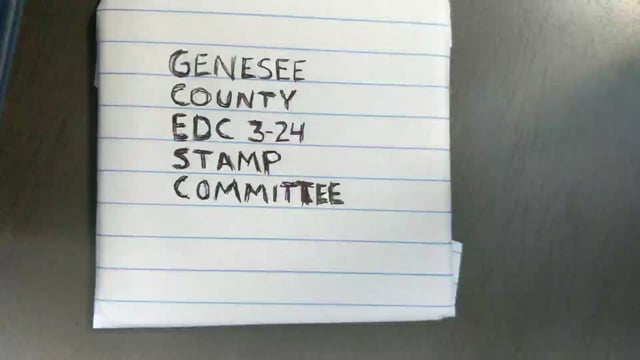 GENESEE
COUNTY
EDC 3-24
STAMP
COMMITTEE